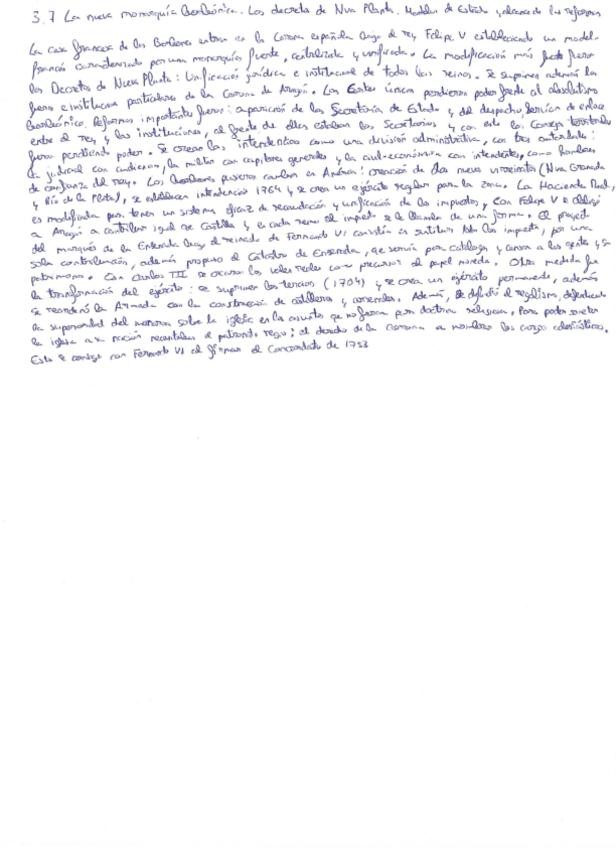 3.7 La nueva monarquía Borbónica. Los decretos de Nva Planta. Modelos de Estado y alcance de las reformas
La casa francesa de los Borbones entran en la Corona española luego el rey Felipe V estableciendo un model-
francés caracterizado por una monarquía fuerte, centralizada y unificada. La modificación más fueron
los Decretos de Nueva Planta: Unificación jurídica e institucional de todos los reinos. Se suprimen además los
fueros e institucion particulares de la Corona de Aragón. Las Cortes perdieron poder frente al absolutismo
Borbónico. Reformas importantes fueron: aparición de las Secretaría de Estado y del despacho, servían de enlace
entre el rey y las instituciones, al frente de ellas estaban los Secretarios y con esto los Consejos territoriales
fueron perdiendo poder. Se crean las intendencias como una división administrativa, con tres autoridades:
la judicial con audiencias, la militar con capitanes generales y la civil-económica con intendentes, como hombres
de confianza del rey. Los Borbones pusieron cambios en América: creación de dos nuevos virreinatos (Nva Granada
y Río de la Plata), se establecen intendencias 1764 y se crea un ejército regular para la zona. La Hacienda Real,
es modificada para tener un sistema eficaz de recaudación y unificación de los impuestos, y con Felipe V se obligó
a Aragón a contribuir igual que Castilla y en cada reino el impuesto se le llamaba de una forma. El proyecto
del marqués de la Ensenada luego el reinado de Fernando VI consistía en sustituir todos los impuestos, por una
sola contribución, además propuso el Catastro de Ensenada, que servía para catalogar y conocer a las gente y su
patrimonio. Con Carlos III se crearon los vales reales como precursor al papel moneda. Otra medida fue
la transformación del ejército: se suprimen los tercios (1704) y se crea un ejército permanente, además
se reordenó la Armada con la construcción de astilleros y arsenales. Además, se difundió el regalismo, defendiendo
la superioridad del monarca sobre la iglesia en los asuntos que no fueran para doctrina religiosa. Para poder someter
la iglesia a su nación necesitaban el patronato regio: el derecho de la corona a nombrar los cargos eclesiásticos.
Esto se consigue con Fernando VI al firmar el Concordato de 1753